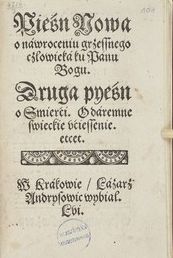 Pieśń Nowa
o nawroceniu grzesznego
człowieká ku Pánu
Bogu.
Druga pyeśń
o Smierći. O daremne
swieckie vćiesienie.
etcet.
W Krákowie / Łázarz
Andrysowic wybiał.
Lvi.